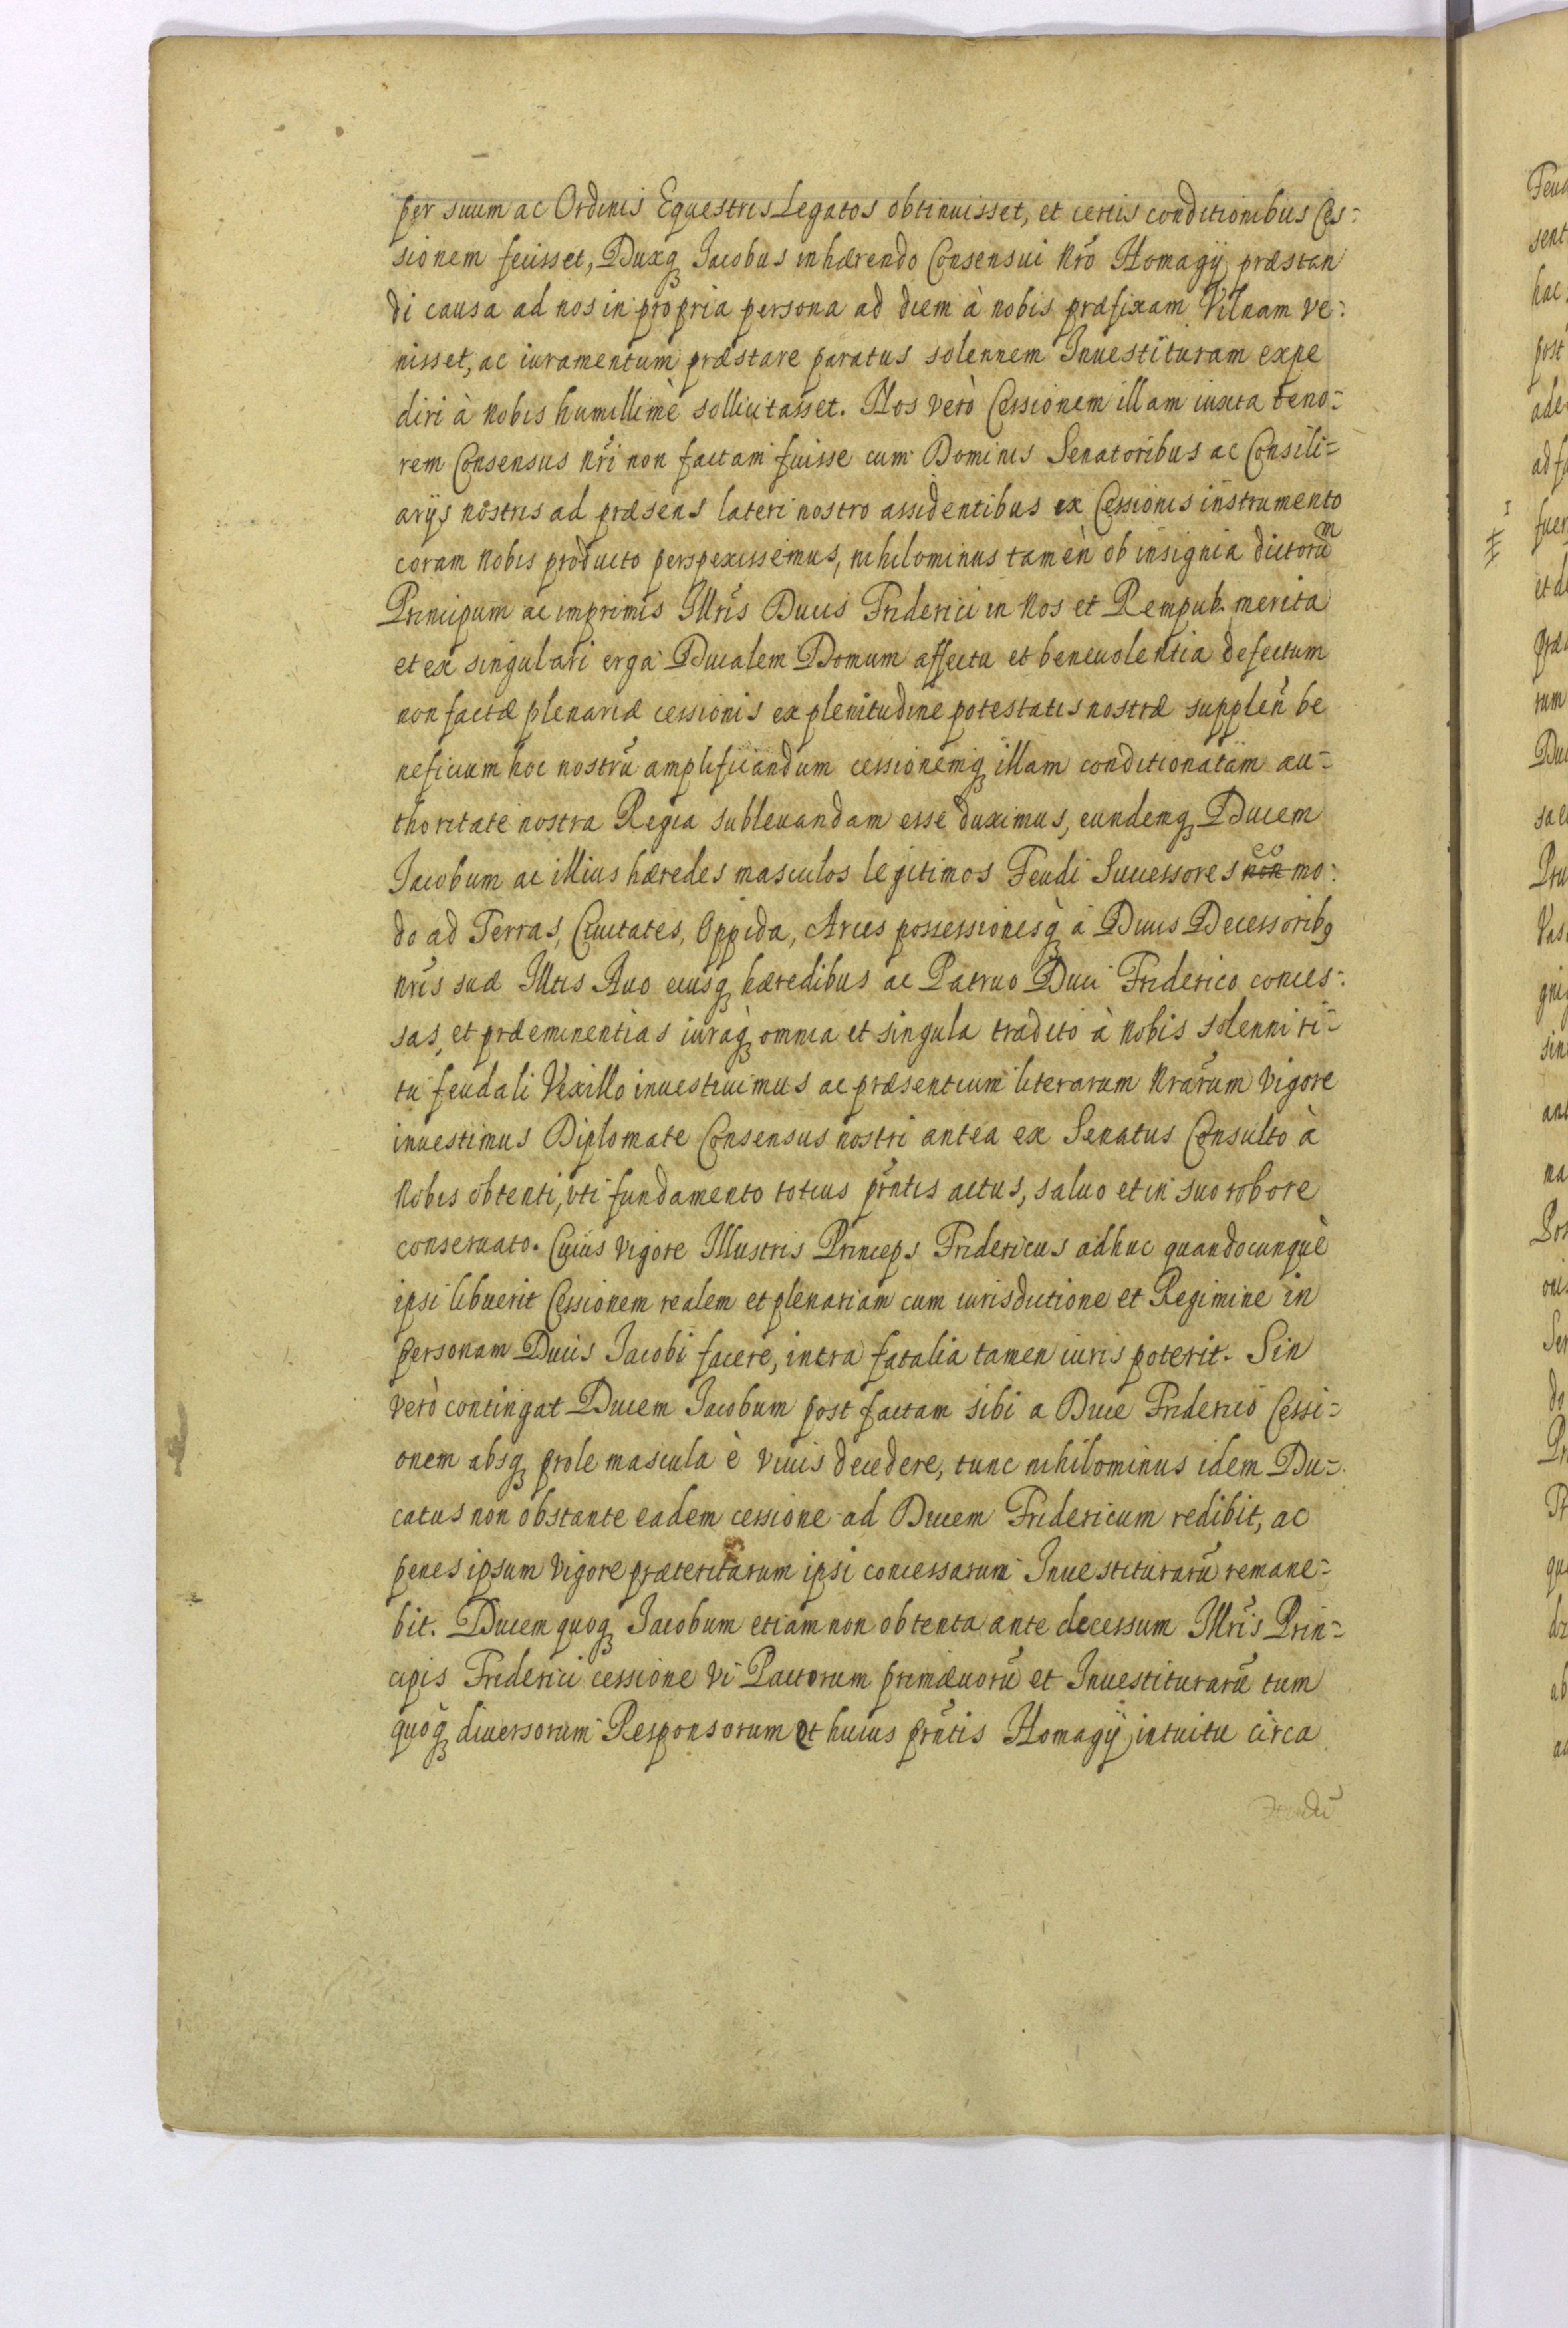 per suum ac Ordinis Equestris Legatos obtinuisset, et certis conditionibus Ces=
sionem fecisset, Duxq; Jacobus inhærendo Consensui nr̃o Homagÿ præstan
di causa ad nos in propria persona ad diem à nobis præfixam Vilnam ve=
nisset, ac iuramentum præstare paratus solennem Inuestituram expe
diri à nobis humillimè sollicitasset. Nos verò Cessionem illam iuxta teno=
rem Consensus nr̃i non factam fuisse cum Dominis Senatoribus ac Consili=
arÿs nostris ad præsens lateri nostro assidentibus ex Cessionis instrumento
coram nobis producto perspexissemus, nihilominus tamèn ob insignia dictorũm
Principum ac imprimis Illr̃is Ducis Friderici in nos et Rempub. merita
et ex singulari erga Ducalem Domum affectu et beneuolentia defectum
non factæ plenariæ cessionis ex plenitudine potestatis nostræ supplen̄ be
neficium hoc nostrũ amplificandum cessionemq; illam conditionatam au=
thoritate nostra Regia subleuandam esse duximus, eundemq; Ducem
Jacobum ac illius hæredes masculos legitimos Feudi Successores non eo mo=
do ad Terras, Ciuitates, Oppida, Arces possessionesq; à Diuis Decessorib9
nr̃is suæ Illtis Auo eiusq; hæredibus ac Patruo Duci Friderico conces=
sas, et præeminentias iuraq; omnia et singula tradito à nobis solenni ri=
tu feudali Vexillo inuestiuimus ac præsentium literarum nr̃arum vigore
inuestimus Diplomate Consensus nostri antea ex Senatus Consulto à
nobis obtenti, vti fundamento totius pr̃ntis actus, saluo et in suo robore
conseruato. Cuius vigore Illustris Princeps Fridericus adhuc quandocunquè
ipsi libuerit Cessionem realem et plenariam cum iurisdictione et Regimine in
personam Ducis Jacobi facere, intra fatalia tamen iuris poterit. Sin
verò contingat Ducem Jacobum post factam sibi a Duce Friderico Cessi=
onem absq; prole mascula è viuis decedere, tunc nihilominus idem Du=
catus non obstante eadem cessione ad Ducem Fridericum redibit, ac
penes ipsum vigore præteritarum ipsi concessarum Inuestiturarũ remane=
bit. Ducem quoq; Jacobum etiam non obtenta ante decessum Illr̃is Prin=
cipis Friderici cessione vi Pactorum primæuorũ et Inuestiturarũ tum
quoq; diuersorum Responsorum et huius pr̃ntis Homagÿ intuitu circa
Feudũ
Feu
sent
hac
post
ade
ad fa
fuer
et d
præ
rum
Duc
Pru
Vas
sin
ant
na
Pos
Ser
do
Pr
qu
ab